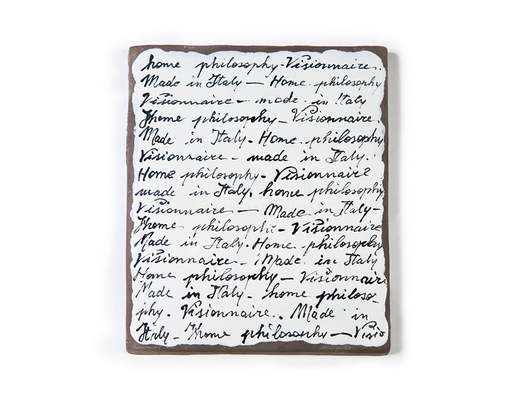 home philosophy - Visionnaire.
Made in Italy — Home philosophy
Visionnaire - made in Italy
Home philosophy - Visionnaire
Made in Italy - Home philosophy
Visionnaire - made in Italy.
Home philosophy - Visionnaire
made in Italy. home philosophy
Visionnaire — Made in Italy -
Home philosophi - Visionnaire
Made in Italy. Home philosophy
Visionnaire. - Made in Italy
Home philosophy — Visionnaire
Made in Italy - home philoso
phy. Visionnaire. Made in
Italy - Home philosophy — Visio